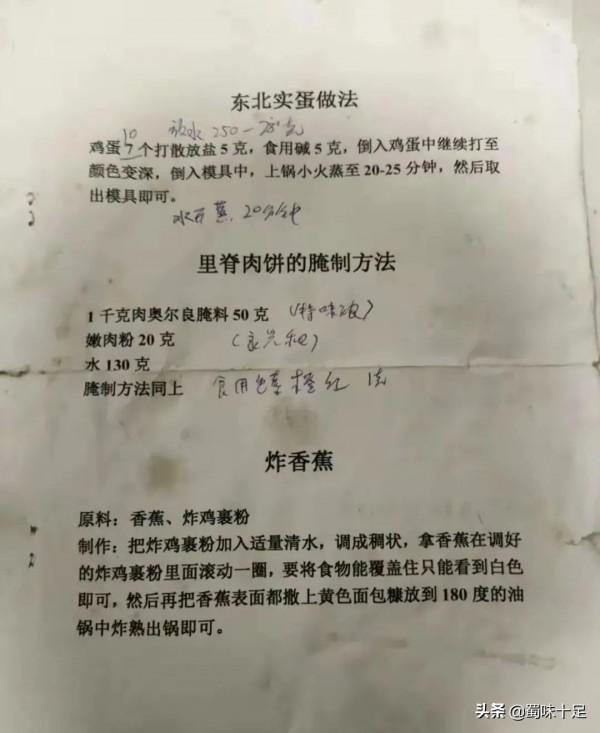 东北实蛋做法
10 放水250-280克
鸡蛋7个打散放盐5克，食用碱5克，倒入鸡蛋中继续打至
颜色变深，倒入模具中，上锅小火蒸至20-25分钟，然后取
出模具即可。
水开蒸20分钟
里脊肉饼的腌制方法
1千克肉奥尔良腌料50克 （特味浓）
嫩肉粉20克
水130克
腌制方法同上 食用色素橙红
炸香蕉
原料：香蕉、炸鸡裹粉
制作：把炸鸡裹粉加入适量清水，调成稠状，拿香蕉在调好
的炸鸡裹粉里面滚动一圈，要将食物能覆盖住只能看到白色
即可，然后再把香蕉表面都撒上黄色面包糠放到180度的油
锅中炸熟出锅即可。
头条 @蜀味十足